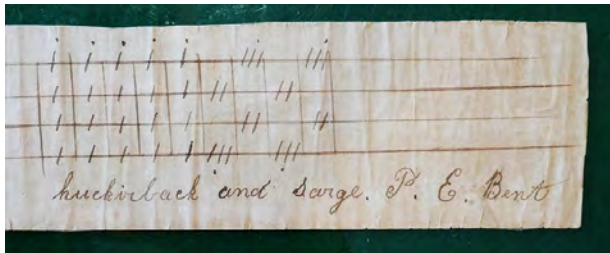 huckirback and sarge. P. E. Bent